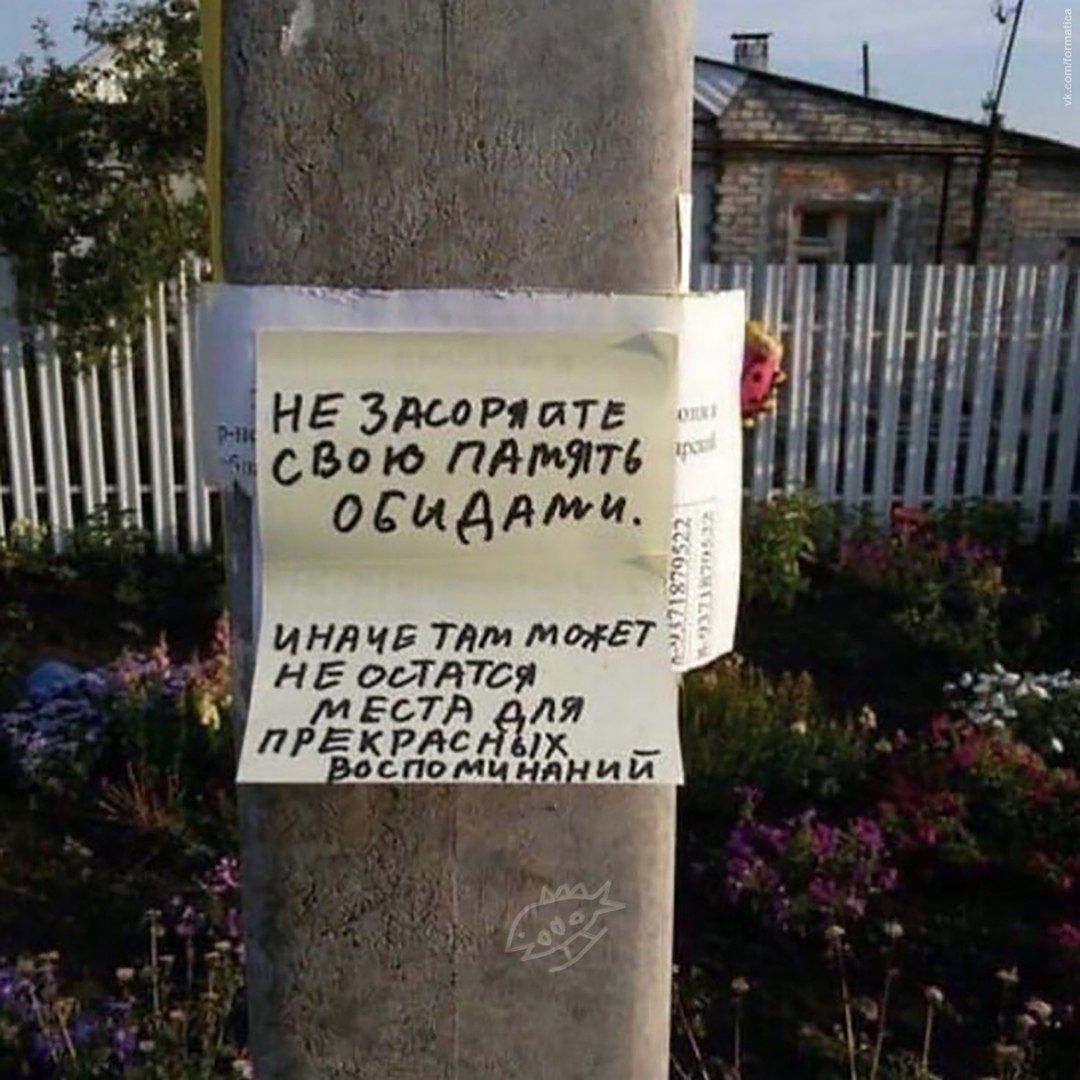 НЕ ЗАСОРЯЙТЕ
СВОЮ ПАМЯТЬ
ОБИДАМИ.
ИНАЧЕ ТАМ МОЖЕТ
НЕ ОСТАТСЯ
МЕСТА ДЛЯ
ПРЕКРАСНЫХ
ВОСПОМИНАНИЙ
8-9371879522
8-9371879522
vk.com/formatica